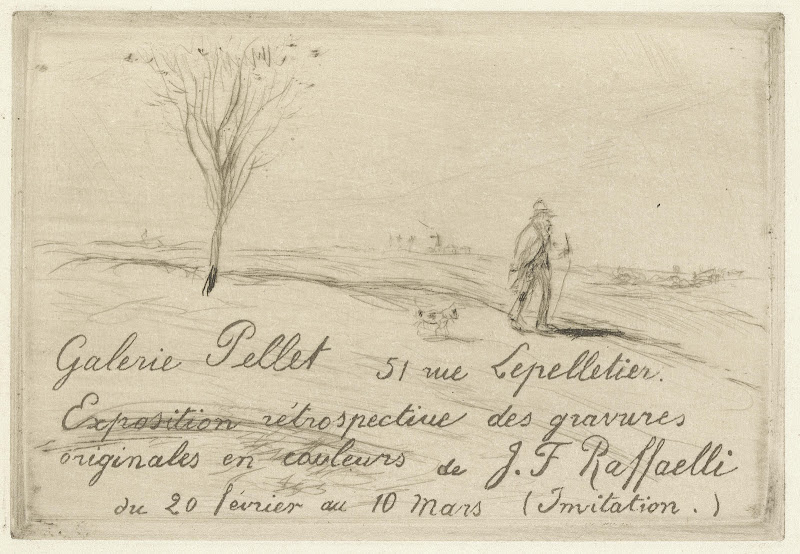 Galerie Pellet 51 rue Lepelletier.
Exposition rétrospective des gravures
originales en couleurs de J. F Raffaelli
du 20 février au 10 Mars (Invitation.)